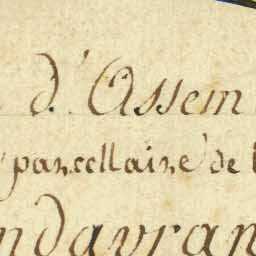 d'Assem
parcellaire de
ndavran